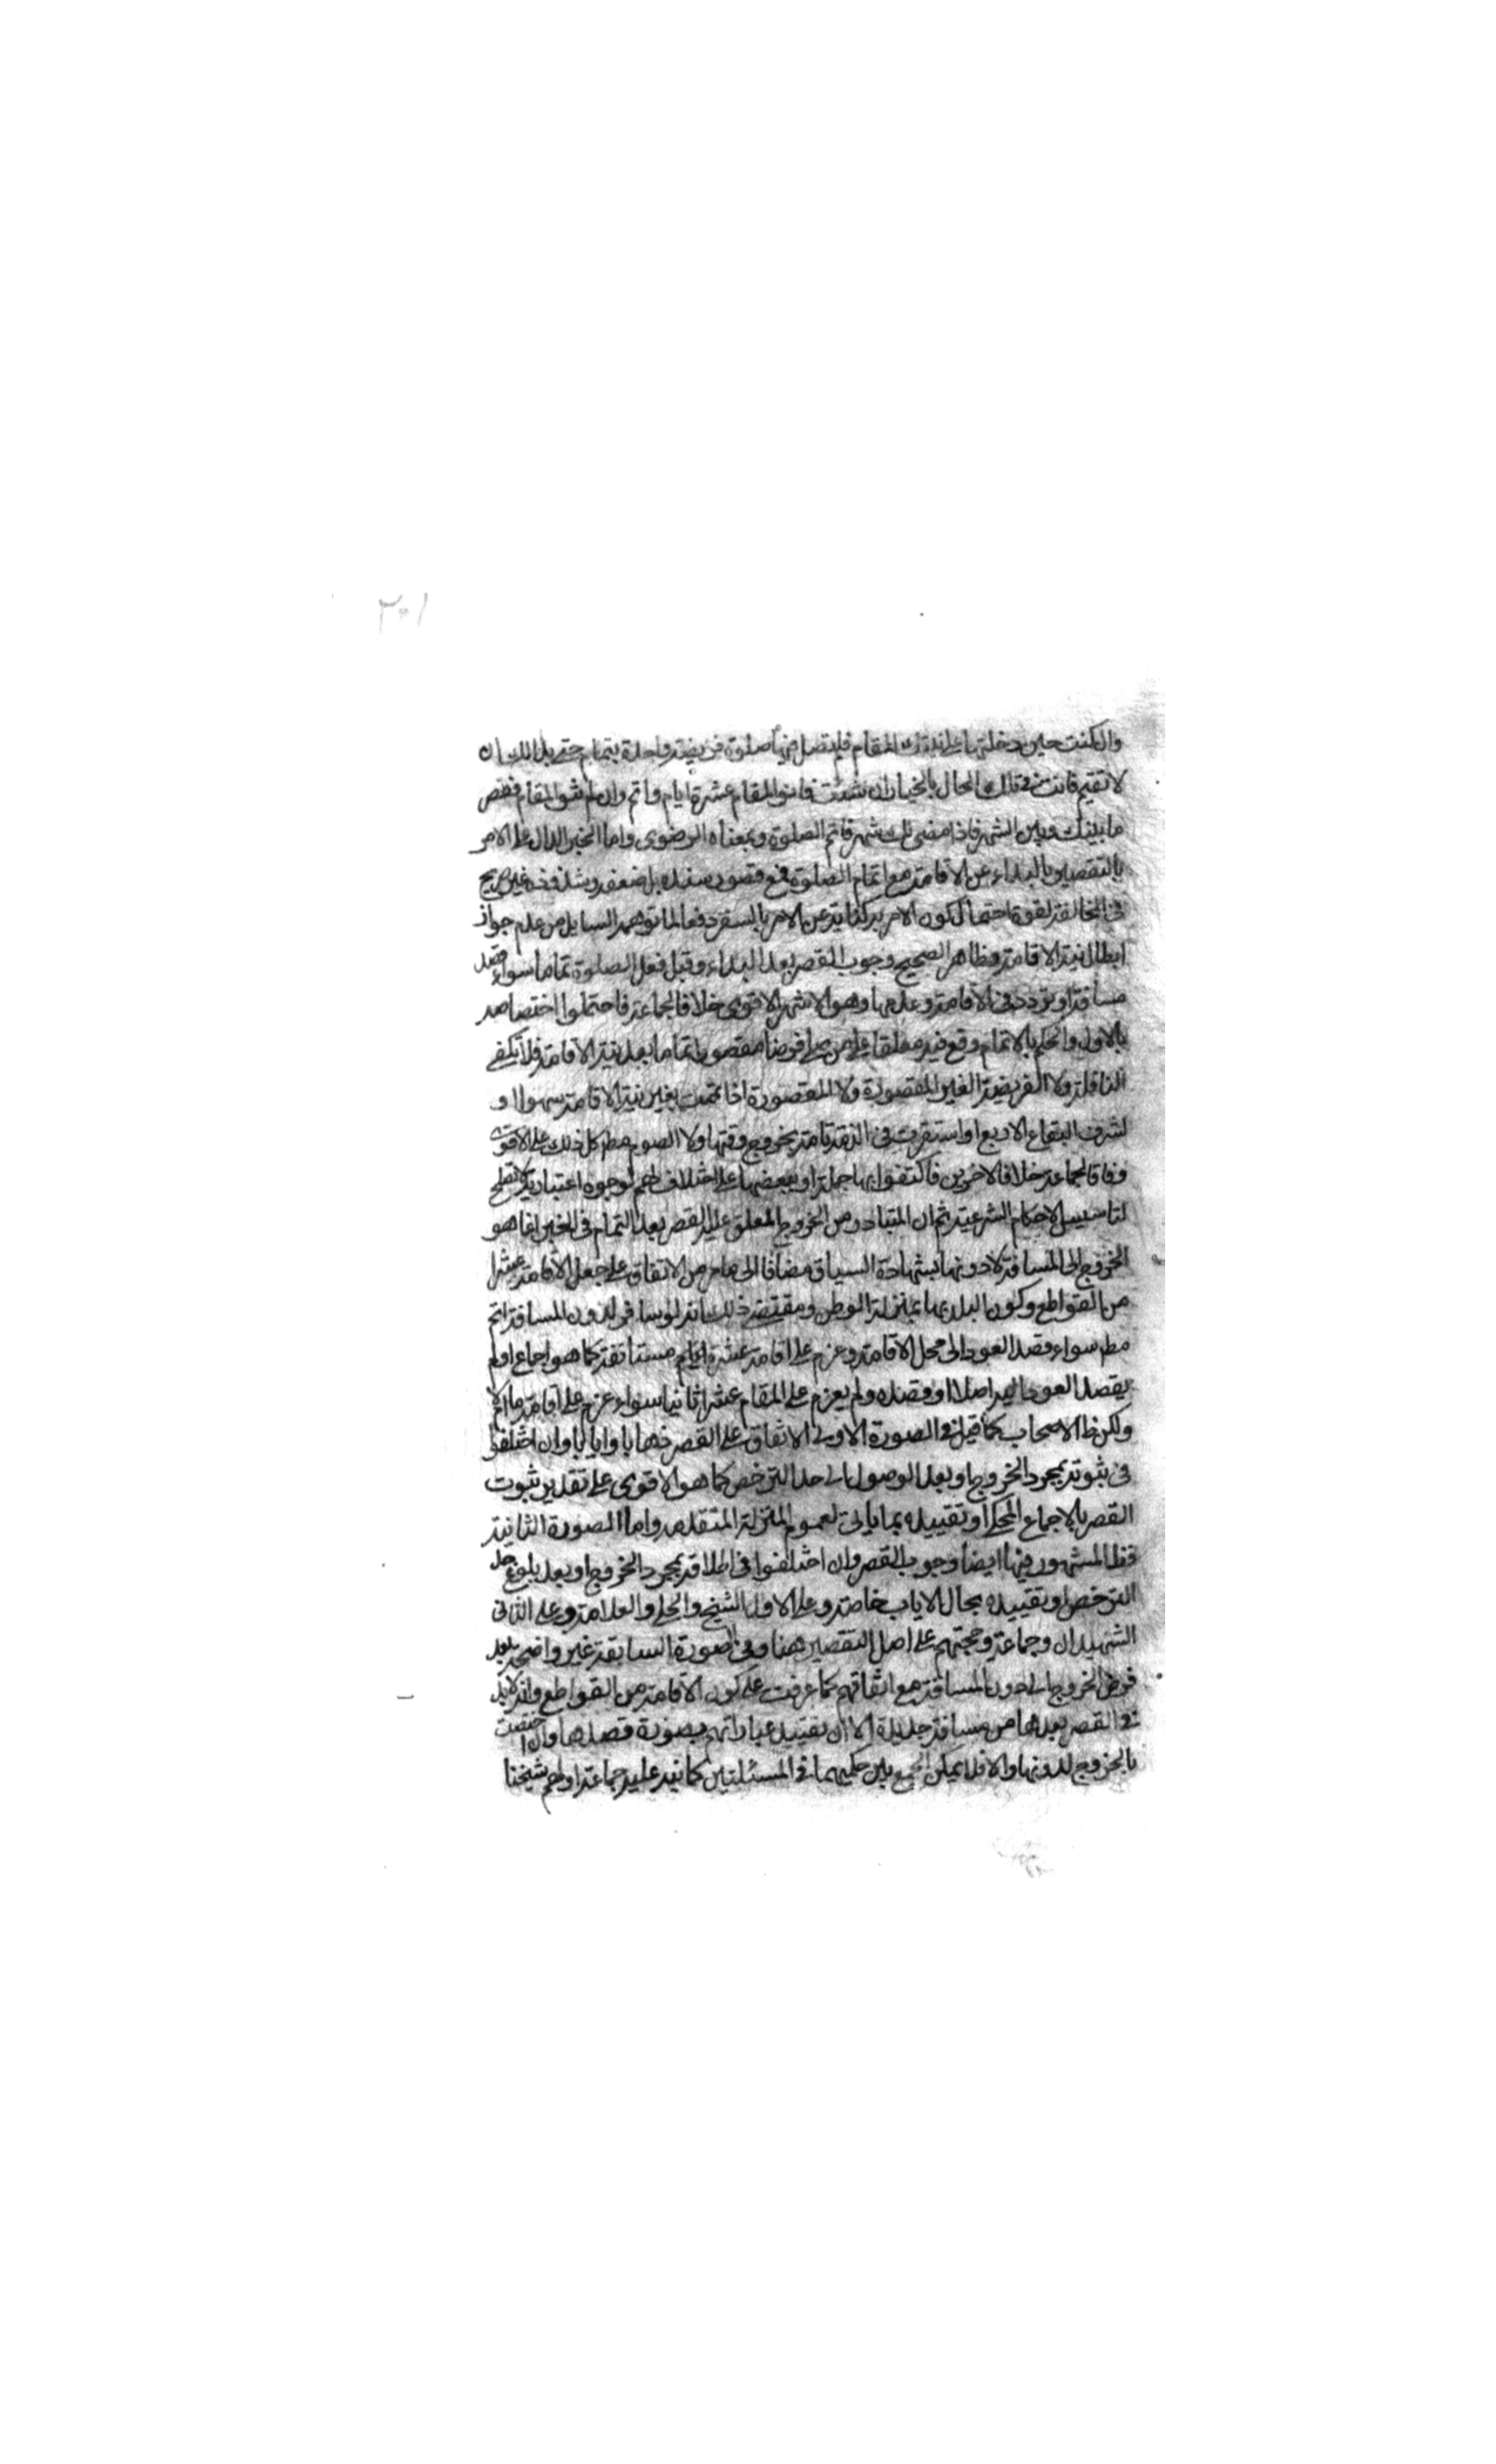 ٣٠١
وان كنت حين دخلتها على نيتك المقام فلم تصل فيها صلوة فريضة واحدة بتمام حتى بدا لك ان
لا تقيم فانت في تلك الحال بالخيار ان شئت فانو المقام عشرة ايام واتم وان لم تنو المقام فقصر
ما بينك وبين الشهر فاذا مضى لك شهر فاتم الصلوة وبمعناه الرضوى واما الخبر الدال على الامر
بالتقصير بالبداء عن الاقامة مع اتمام الصلوة فمع قصور سنده بل ضعفه وشذوذه غير صريح
في المخالفة لقوة احتمال كون الامر به كناية عن الامر بالسفر دفعا لما توهمه السايل من عدم جواز
ابطال نية الاقامة وظاهر الصحيح وجوب القصر بعد البداء وقبل فعل الصلوة تماما سواء قصد
مسافة او تردد في الاقامة وعدمها وهو الاشهر الاقوى خلافا لجماعة فاحتملوا اختصاصه
بالاول والحكم بالاتمام وقع فيه معلقا على من صلى فرضا مقصورا تماما بعد نية الاقامة فلا تكفى
النافلة ولا الفريضة الغير المقصورة ولا المقصورة اذا تمت بغير نية الاقامة سهوا او
لشرف البقاع الاربع او استقرت في الذمة تامة بخروج وقتها ولا الصوم مط كل ذلك على الاقوى
وفاقا لجماعة خلافا لاخرين فاكتفوا بها جملة او ببعضها على اختلاف لهم لوجوه اعتبارية لا تصلح
لتاسيس الاحكام الشرعية ثم ان المتبادر من الخروج المعلق عليه القصر بعد التمام في الخبر انما هو
الخروج الى المسافة لا دونها بشهادة السياق مضافا الى ما مر من الاتفاق على جعل الاقامة عشرا
من القواطع وكون البلد بها بمنزلة الوطن ومقتضى ذلك انه لو سافر لدون المسافة اتم
مط سواء قصد العود الى محل الاقامة وعزم على اقامة عشرة ايام مستانفة كما هو اجماع او لم
يقصد العود اليه اصلا او قصده ولم يعزم على المقام عشرا ثانيا سواء عزم على اقامة ما ام لا
ولكن ظ الاصحاب كما قيل في الصورة الاولى الاتفاق على القصر ذهابا وايابا وان اختلفوا
في ثبوته بمجرد الخروج او بعد الوصول الى حد الترخص كما هو الاقوى على تقدير ثبوت
القصر بالاجماع المحكى او تقييده بما ياتى لعموم المنزلة المتقدمة واما الصورة الثانية
فظ المشهور فيها ايضا وجوب القصر وان اختلفوا في اطلاقه بمجرد الخروج او بعد بلوغ حد
الترخص او تقييده بحال الاياب خاصة وعلى الاول الشيخ والحلى والعلامة وعلى الثانى
الشهيدان وجماعة وحجتهم على اصل التقصير هنا وفي الصورة السابقة غير واضحة بعد
فرض الخروج الى دون المسافة مع اتفاقهم كما عرفت على كون الاقامة من القواطع وانه لابد
في القصر بعدها من مسافة جديدة الا ان تقييد عباراتهم بصورة قصدها وان اختصت
بالخروج لدونها والا فلا يمكن الجمع بين حكميهما في المسئلتين كما نبه عليه جماعة اولهم شيخنا